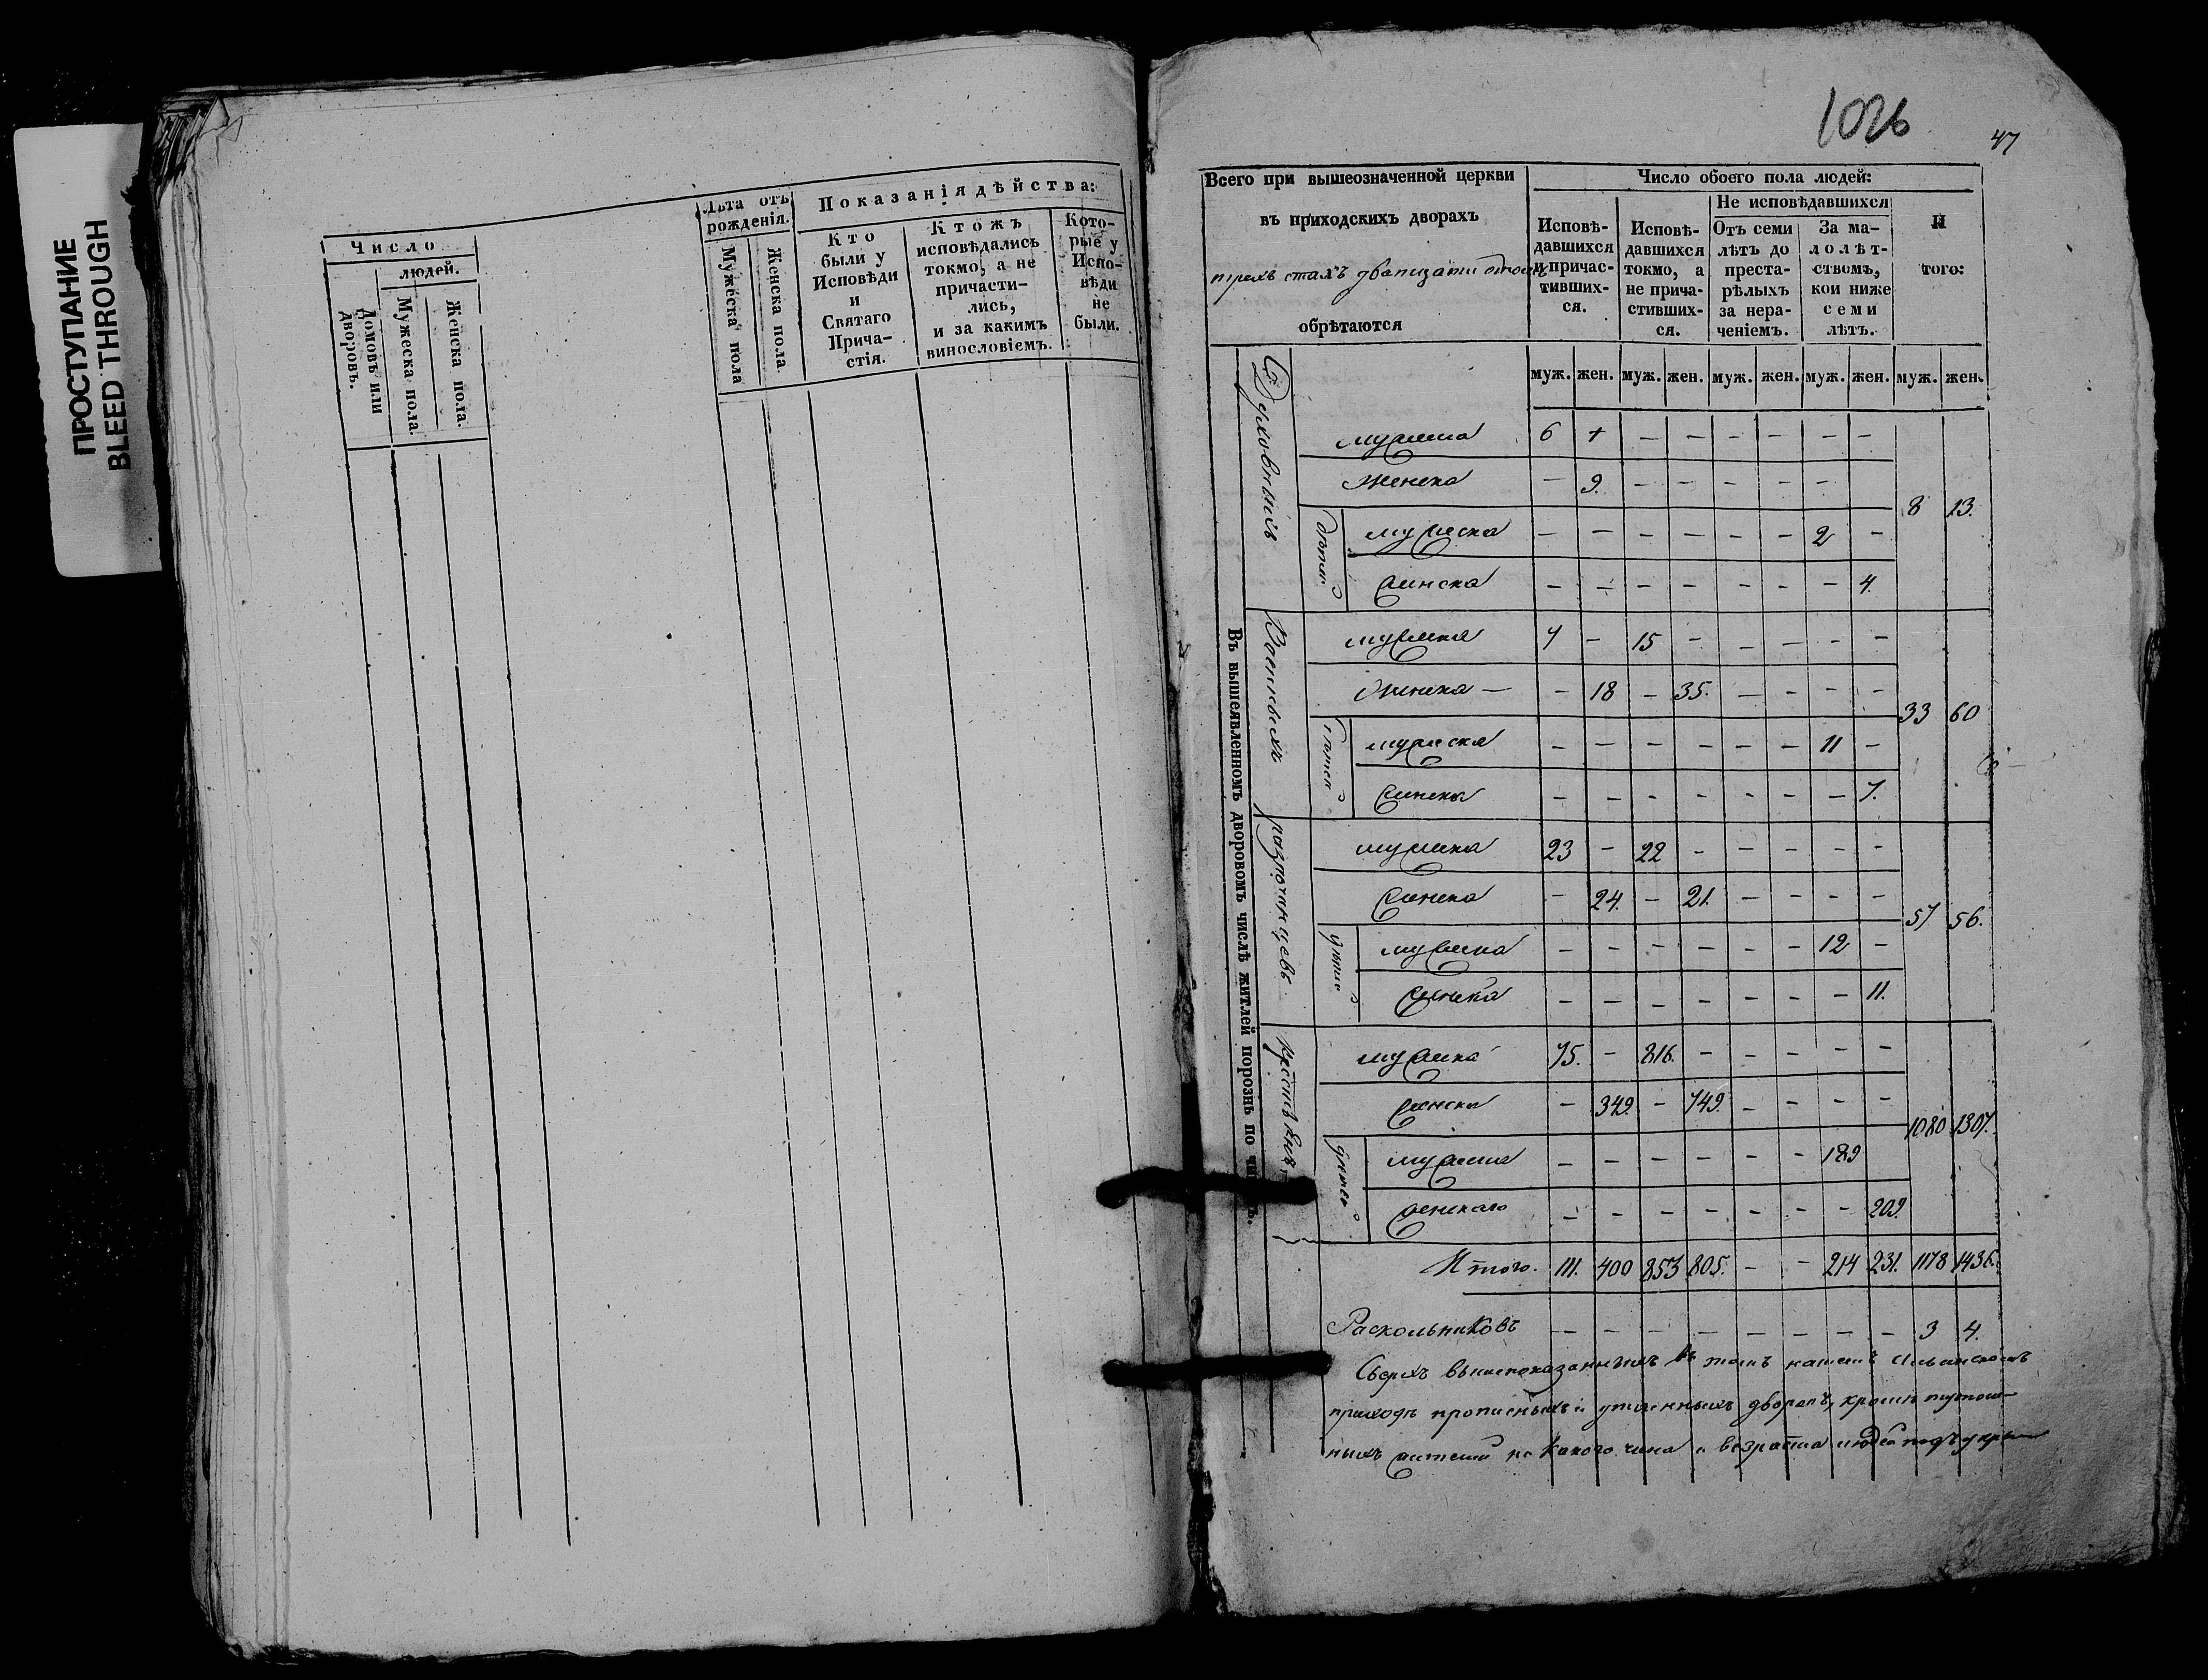 ПРОСТУПАНИЕ
BLEED THROUGH
Число
людей.
Домовъ или дворовъ.
Мужеска пола.
Женска пола.
Лѣта отъ рожденія.
Мужеска пола
Женска пола
Показанія дѣйства:
Кто были у Исповѣди и Святаго Причастія.
Ктожъ исповѣдались токмо, а не причастились, и за какимъ винословіемъ.
Которые у Исповѣди не были.
1026
47
Всего при вышеозначенной церкви
въ приходскихъ дворахъ
трехъ стахъ дватцати
обрѣтаются
Число обоего пола людей:
Исповѣ-
давшихся
и причас-
тивших-
ся.
Исповѣ-
давшихся
токмо, а
не прича-
стивших-
ся.
Не исповѣдавшихся
Отъ семи
лѣтъ до
преста-
рѣлыхъ
за нера-
ченіемъ.
За ма-
лолѣт-
ствомъ,
кои ниже
семи
лѣтъ.
И
того:
муж. жен. муж. жен. муж. жен. муж. жен. муж. жен.
Въ вышеявленномъ дворовомъ числѣ житлей порознь по
Духовныхъ
мужеска 6 + — — — — — —
Женска — 9. — — — — —
8 13.
дѣтей
мужеска — — — — — — 2 —
женска — — — — — — — 4.
Военныхъ
мужеска 7 — 15 — — — — —
женска — — 18 — 35. — — — —
33 60
дѣтей
мужеска — — — — — — 11 —
женска — — — — — — — 7.
разночинцевъ
мужеска 23 — 22 — — — — —
женска — 24. — 21. — — — —
57 56.
дѣтей
мужеска — — — — — — 12 —
женска — — — — — — — 11.
крестьянъ
мужеска 75. — 816. — — — — —
женска — 349. — 749. — — — —
1080 1307.
дѣтей
мужеска — — — — — — 189
женскаго — — — — — — — 209.
Итого. 111. 400 853 805. — — 214 231. 1178 1436.
Раскольниковъ — — — — — — — — 3 4.
Сверхъ вышепоказанныхъ въ томъ нашемъ
приходѣ прописныхъ и утаенныхъ дворовъ, кромѣ
ныхъ жителей ни какого чина и возраста людей